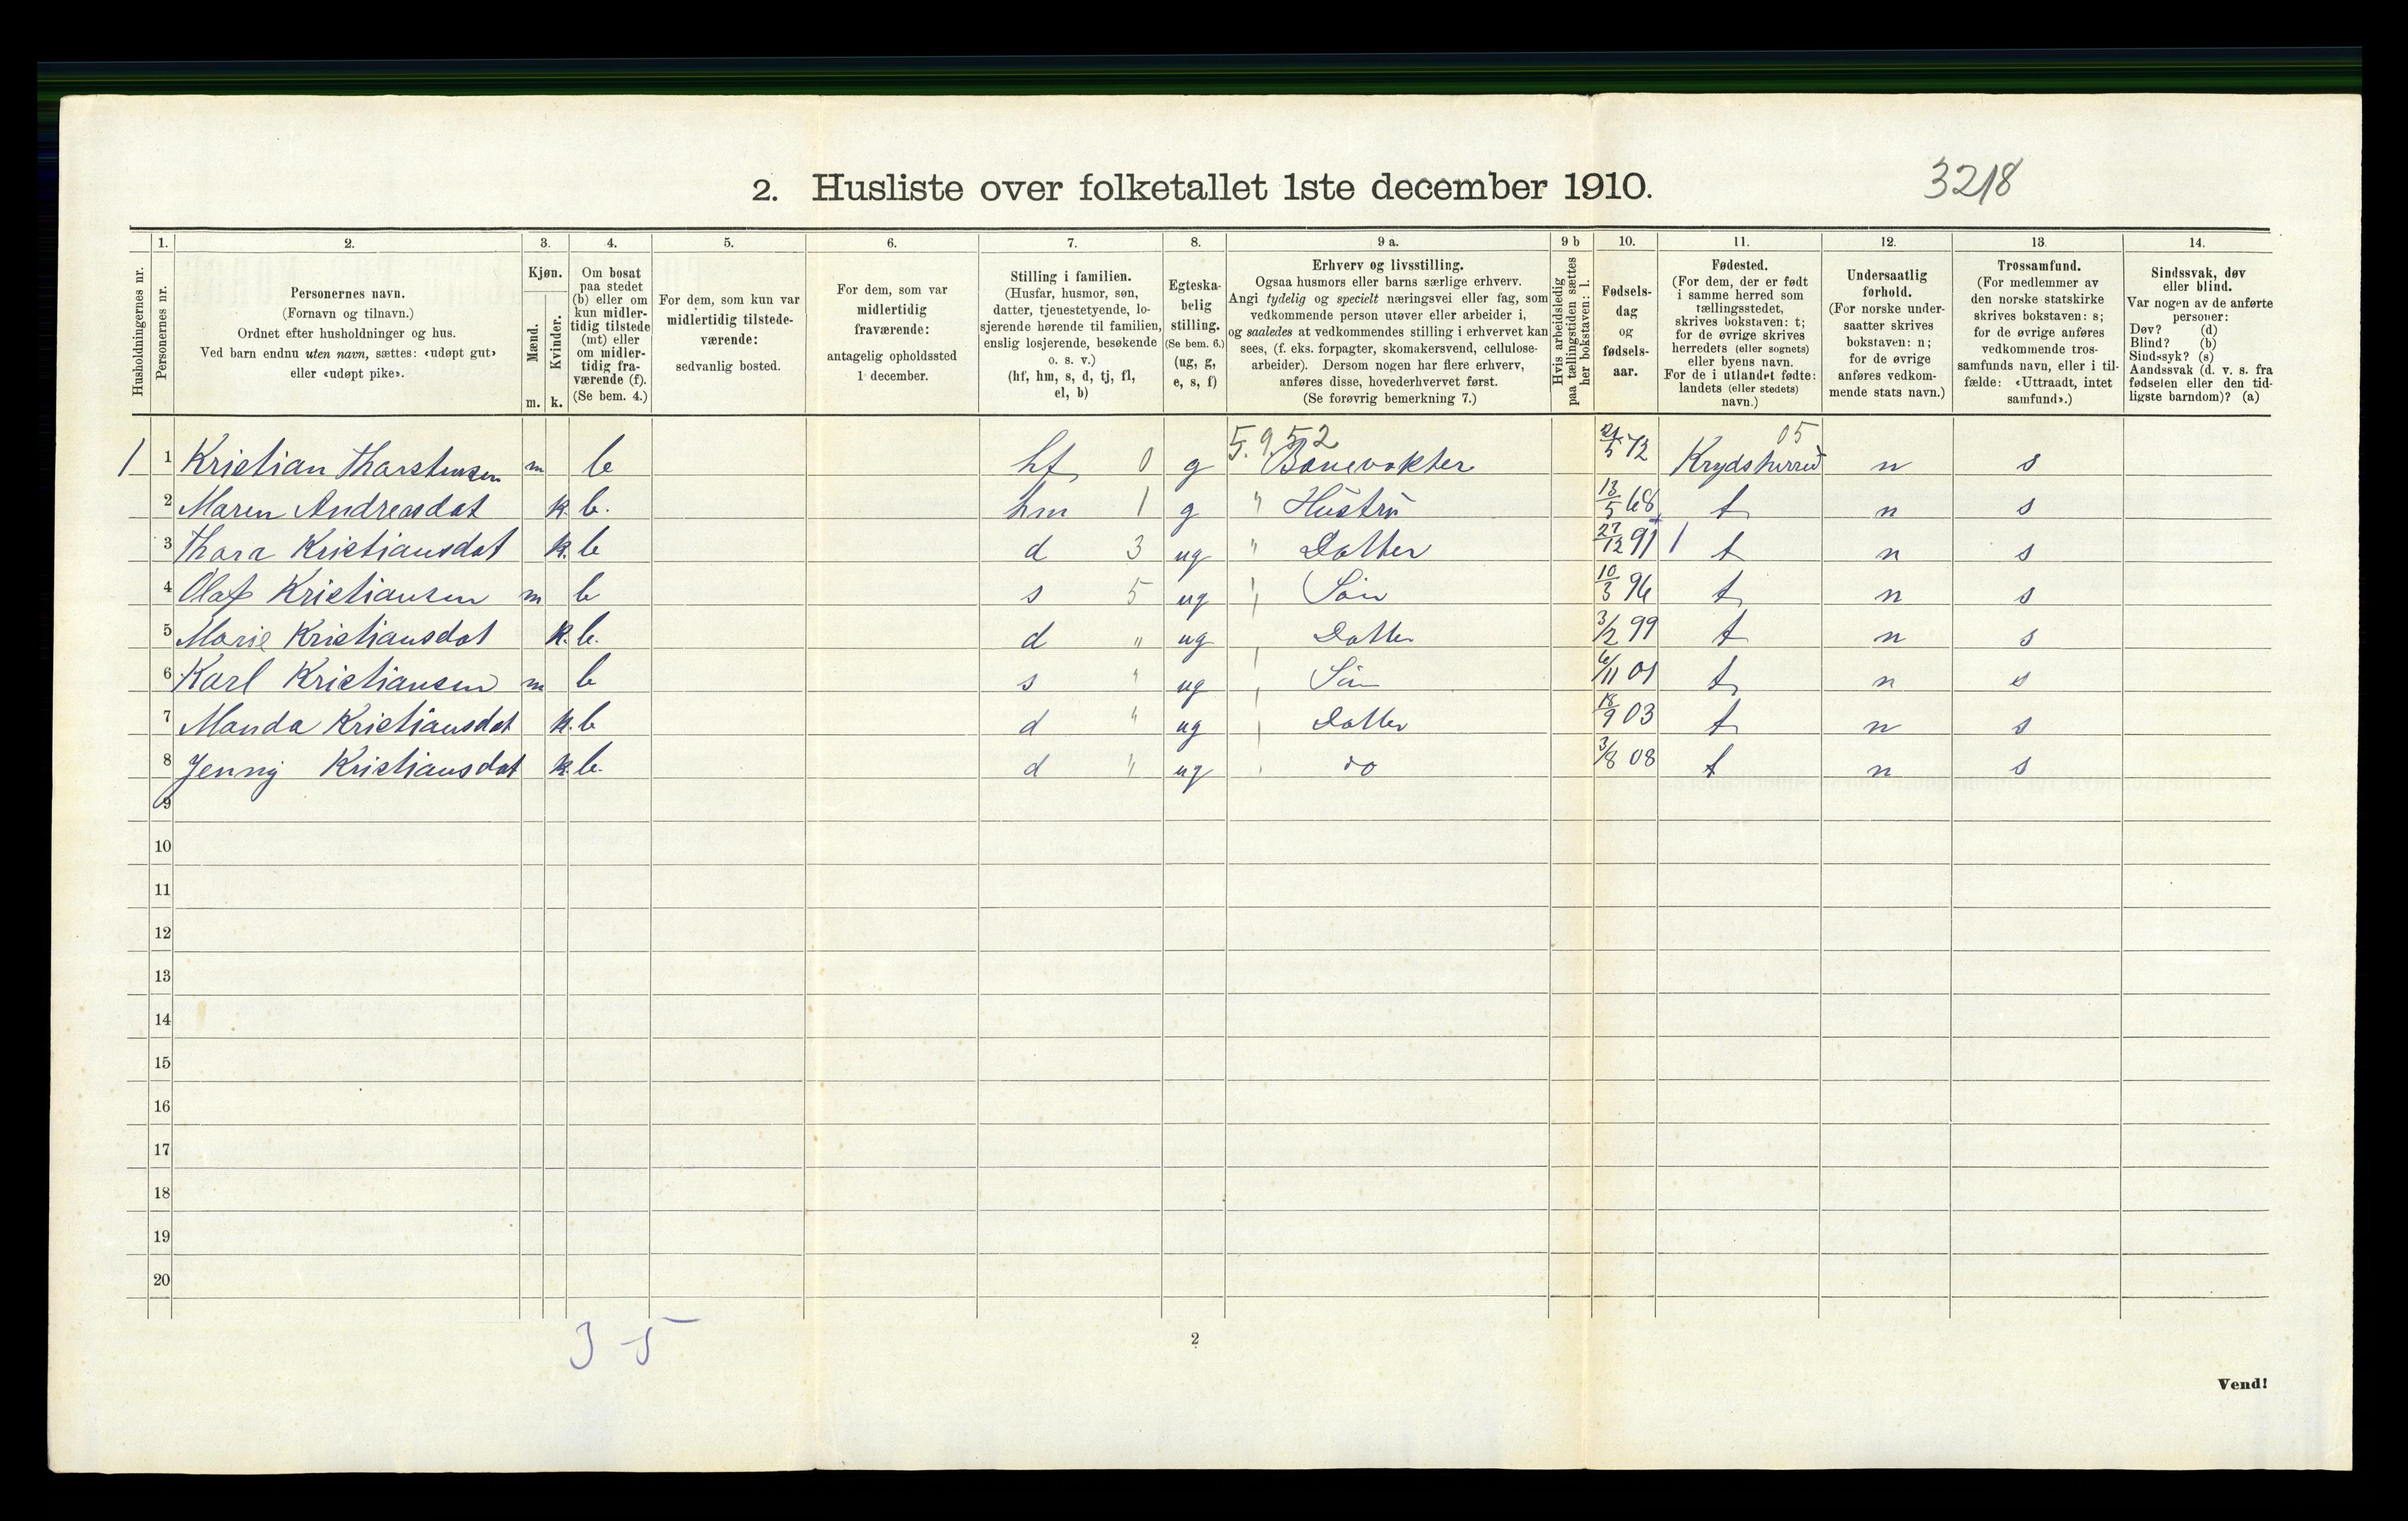 2. Husliste over folketallet 1ste december 1910.
3218
1. 2. 3. 4. 5. 6. 7. 8. 9 a. 9 b 10. 11. 12. 13. 14.
Husholdningernes nr.
Personernes nr.
Personernes navn.
(Fornavn og tilnavn.)
Ordnet efter husholdninger og hus.
Ved barn endnu uten navn, sættes: «udøpt gut»
eller «udøpt pike».
Kjøn.
Mænd.
Kvinder.
m. k.
Om bosat
paa stedet
(b) eller om
kun midler-
tidig tilstede
(mt) eller
om midler-
tidig fra-
værende (f).
(Se bem. 4.)
For dem, som kun var
midlertidig tilstede-
værende:
sedvanlig bosted.
For dem, som var
midlertidig
fraværende:
antagelig opholdssted
1 december.
Stilling i familien.
(Husfar, husmor, søn,
datter, tjenestetyende, lo-
sjerende hørende til familien,
enslig losjerende, besøkende
o. s. v.)
(hf, hm, s, d, tj, fl,
el, b)
Egteska-
belig
stilling.
(Se bem. 6.)
(ug, g,
e, s, f)
Erhverv og livsstilling.
Ogsaa husmors eller barns særlige erhverv.
Angi tydelig og specielt næringsvei eller fag, som
vedkommende person utøver eller arbeider i,
og saaledes at vedkommendes stilling i erhvervet kan
sees, (f. eks. forpagter, skomakersvend, cellulose-
arbeider). Dersom nogen har flere erhverv,
anføres disse, hovederhvervet først.
(Se forøvrig bemerkning 7.)
Hvis arbeidsledig
paa tællingstiden sættes
her bokstaven: l.
Fødsels-
dag
og
fødsels-
aar.
Fødested.
(For dem, der er født
i samme herred som
tællingsstedet,
skrives bokstaven: t;
for de øvrige skrives
herredets (eller sognets)
eller byens navn.
For de i utlandet fødte:
landets (eller stedets)
navn.)
Undersaatlig
forhold.
(For norske under-
saatter skrives
bokstaven: n;
for de øvrige
anføres vedkom-
mende stats navn.)
Trossamfund.
(For medlemmer av
den norske statskirke
skrives bokstaven: s;
for de øvrige anføres
vedkommende tros-
samfunds navn, eller i til-
fælde: «Uttraadt, intet
samfund».)
Sindssvak, døv
eller blind.
Var nogen av de anførte
personer:
Døv? (d)
Blind? (b)
Sindssyk? (s)
Aandssvak (d. v. s. fra
fødselen eller den tid-
ligste barndom)? (a)
5.9.52 05
1 1 Kristian Tharstensen m b hf 0 g Banevokter 21/5 72 Krydsherred n s
2 Maren Andreasdat k. b. hm 1 g " Hustru 13/5 68 t n s
3 Thara Kristiansdat k. b d 3 ug " Datter 27/12 91 1 t n s
4 Olaf Kristiansen m b s 5 ug " Søn 10/3 96 t n s
5 Marie Kristiansdat k. b. d " ug " Datter 3/2 99 t n s
6 Karl Kristiansen m b s " ug " Søn 6/11 01 t n s
7 Manda Kristiansdat k. b d " ug " Datter 18/9 03 t n s
8 Jenny Kristiansdat k. b. d " ug " do 3/8 08 t n s
9
10
11
12
13
14
15
16
17
18
19
20
3-5
2
Vend!